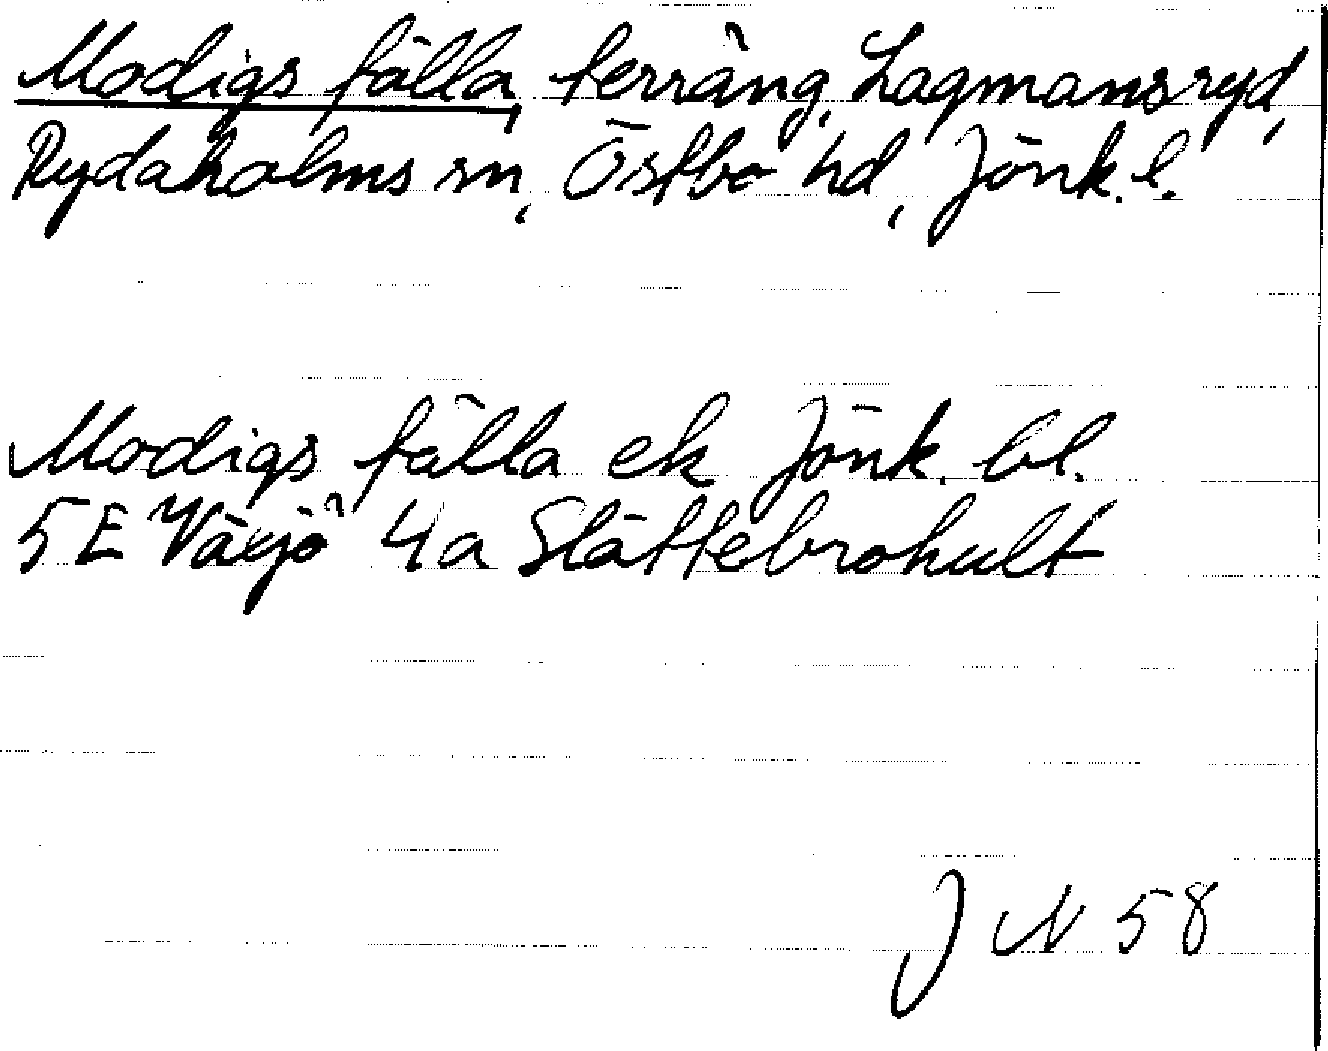 Modigs fälla, terräng, Lagmansryd,
Rydaholms sn, Östbo hd, Jönk. l.
Modigs fälla ek Jönk. bl.
5 E Växjö 4a Slättebrohult
J N 58